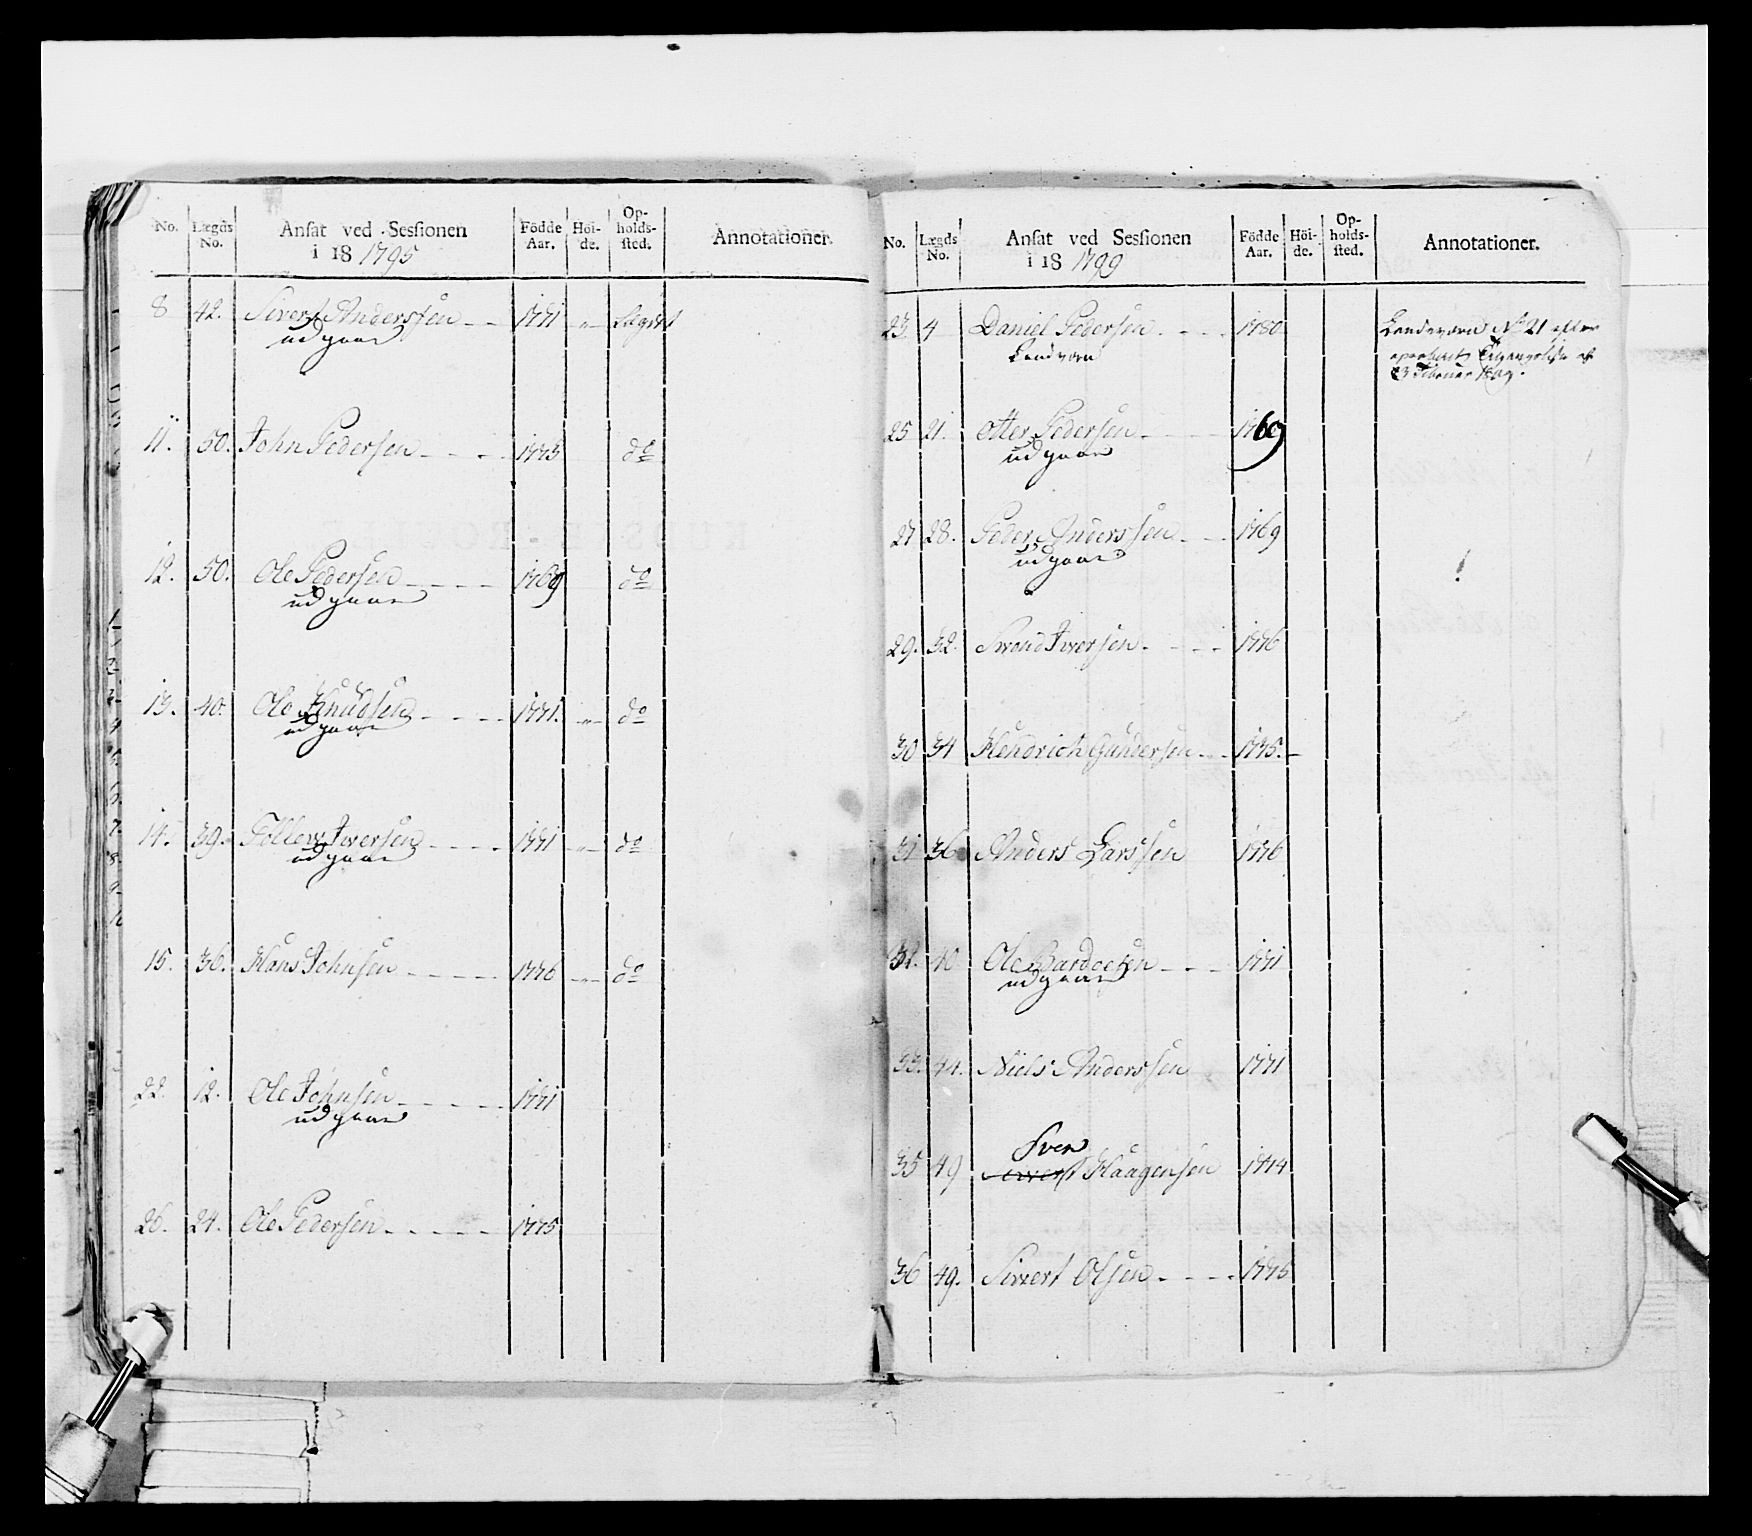 No. Lægds No. Ansat ved Sessionen i 18 1795 Födde Aar. Höide. Opholdssted. Annotationer.
8 42. Sivert Anderssen 1771 " Lægdet
udgaar
11. 50. John Pedersen 1773 do
12. 50. Ole Pedersen 1769 do
udgaar
13. 40. Ole Knudsen 1771. " do
udgaar
14. 39. Tollew Iwersen 1771 " do
udgaar
15. 36. Hans Johnsen 1776 " do
22. 12. Ole Johnsen 1771
udgaar
26. 24. Ole Pedersen 1775
No. Lægds No. Ansat ved Sessionen i 18 1799 Födde Aar. Höide. Opholdssted. Annotationer.
23 4 Daniel Pedersen 1780 Landeværn No 21 efter
Landværn
3 Februar
25 21. Otter Pedersen 1769
udgaar
27 28. Peder Anderssen 1769
udgaar
29. 32. Swend Iwersen 1776
30 34 Hendrich Gundersen 1775.
31 36 Anders Larssen 1776
32. 40 Ole Bardoesen 1771
udgaar
33. 44. Niels Anderssen 1771
Sven
35 49 Haagensen 1774
36 49. Siwert Olsen 1775